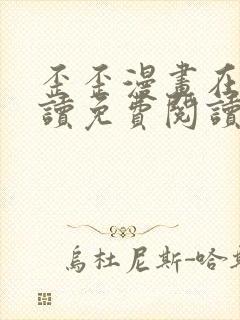 歪歪漫畫在
讀免費閱讀
烏杜尼斯-哈斯